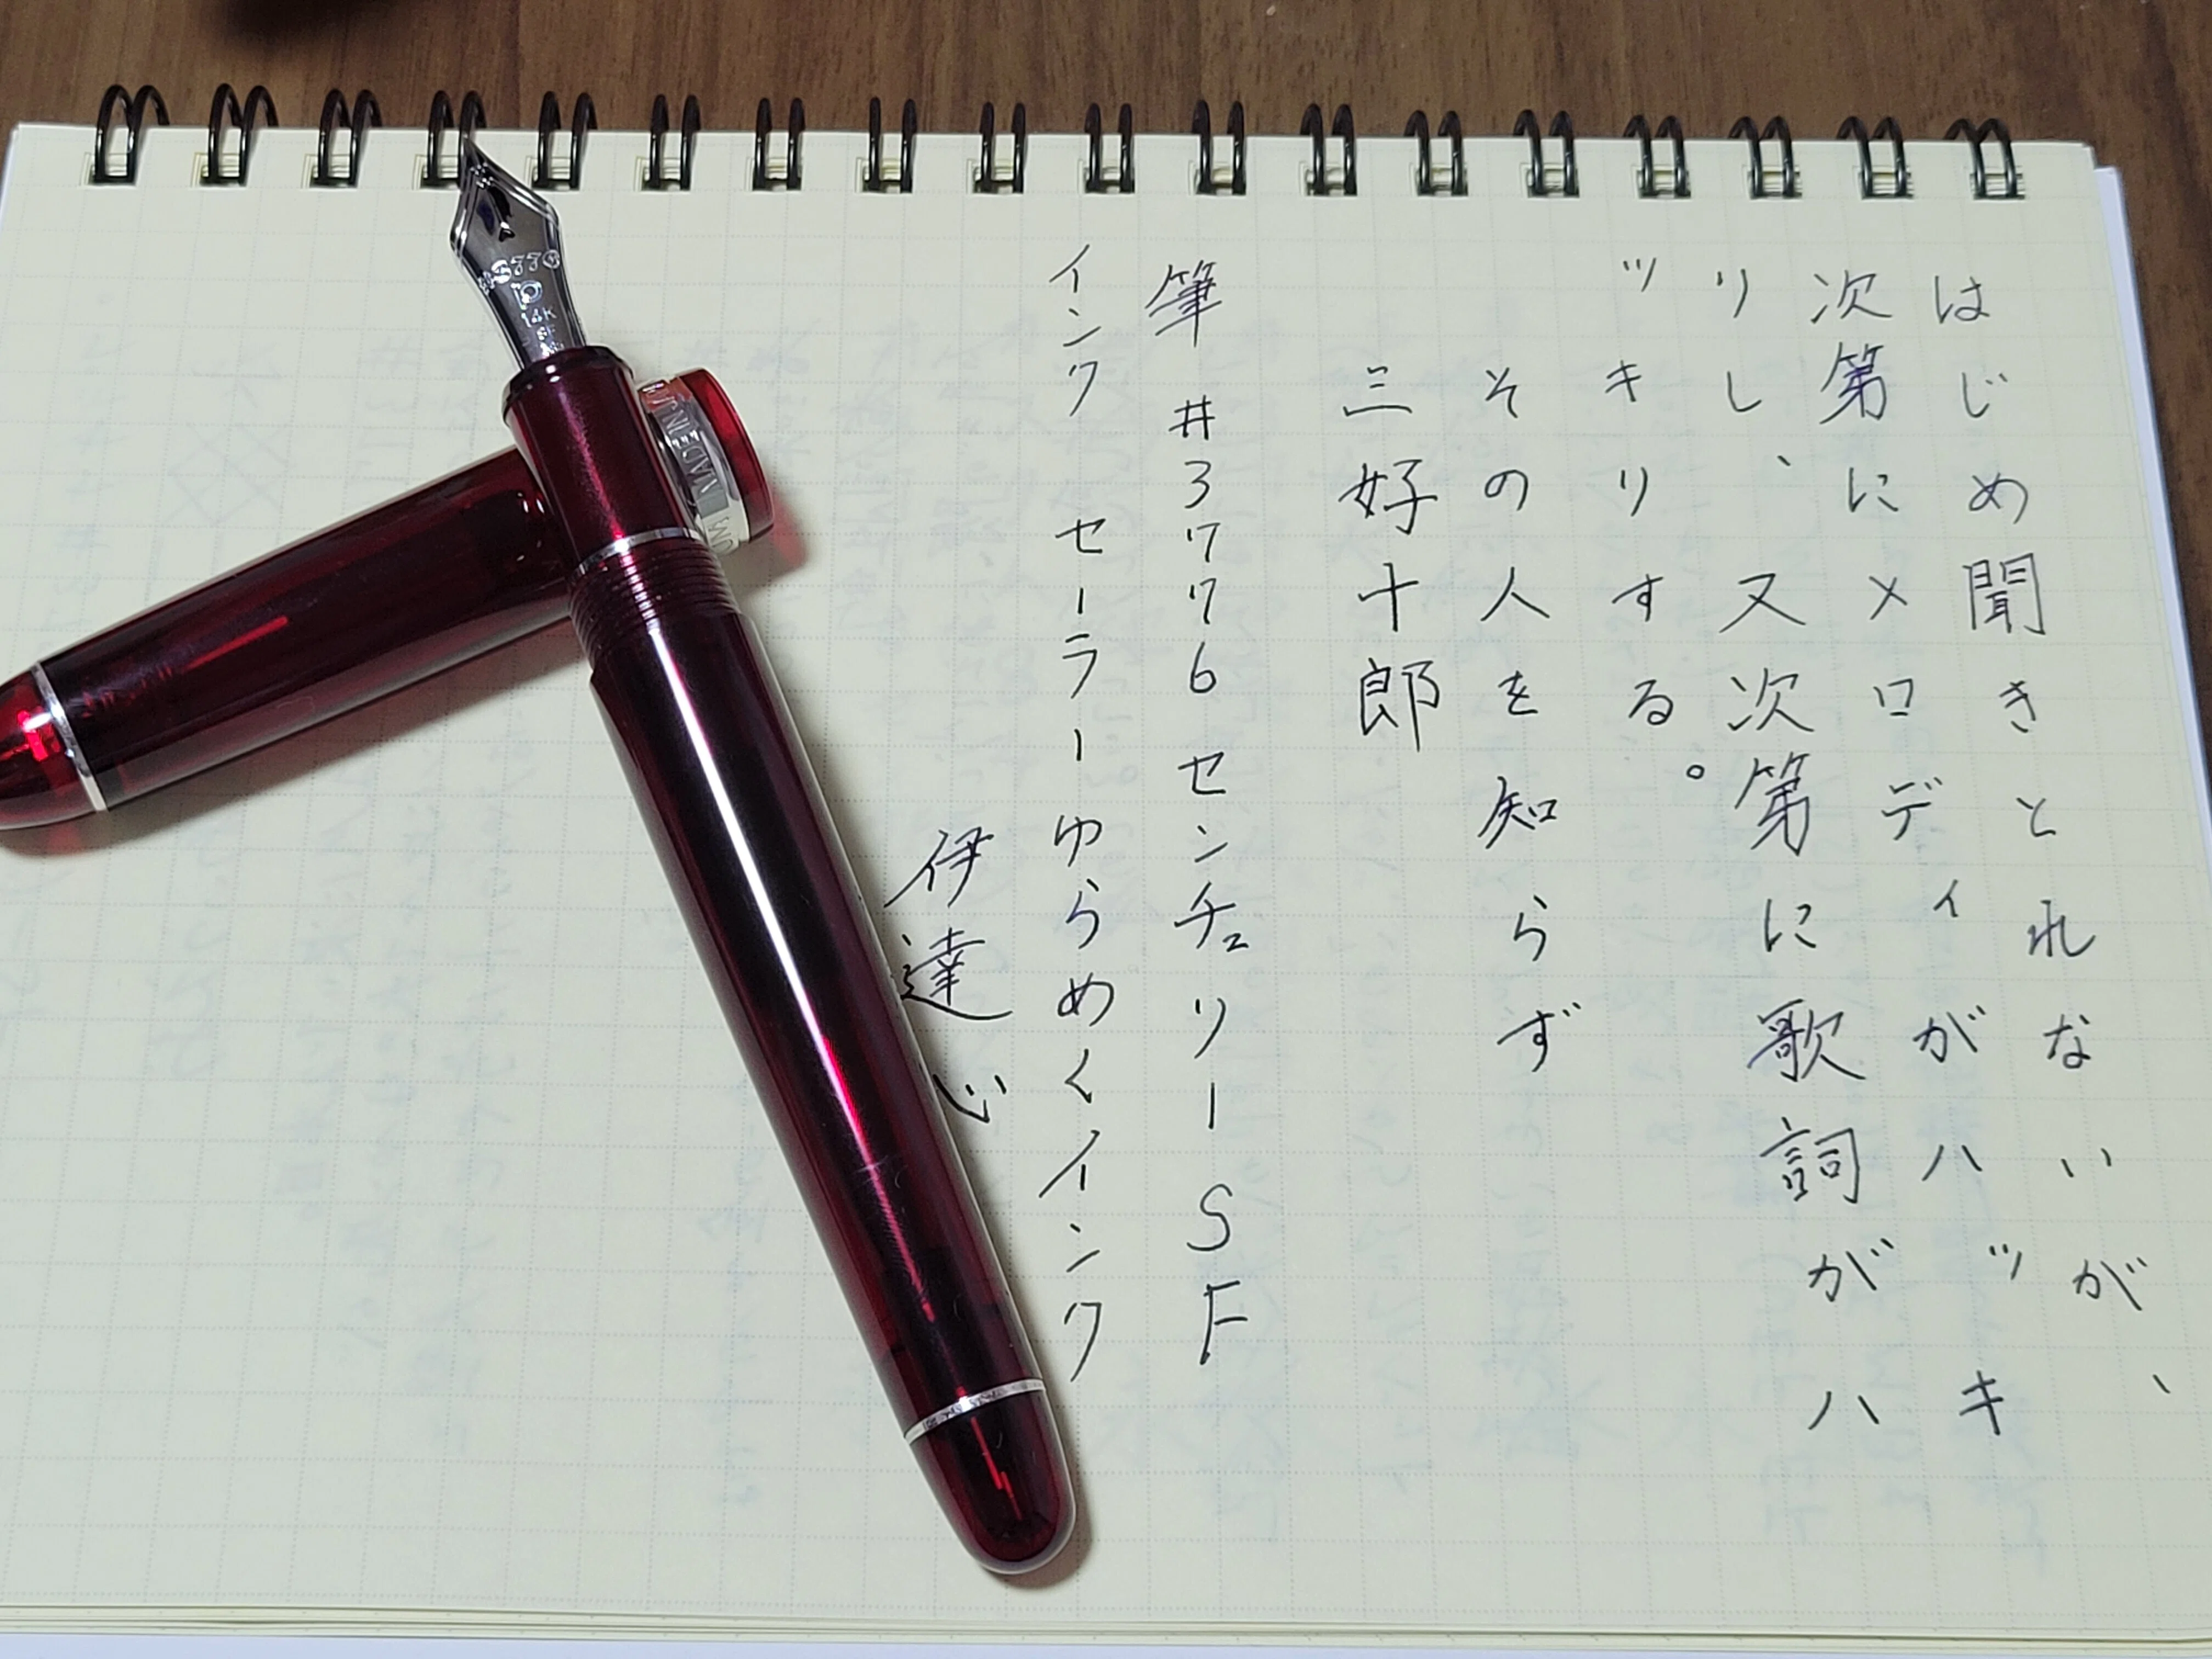 はじめ聞きとれないが、
次第にメロディがハッキ
リし、又次第に歌詞がハ
ッキリする。
その人を知らず
三好十郎
筆 #3776 センチュリー SF
インク セーラーゆらめくインク
伊達心
3776
14K
SF
MADE IN J